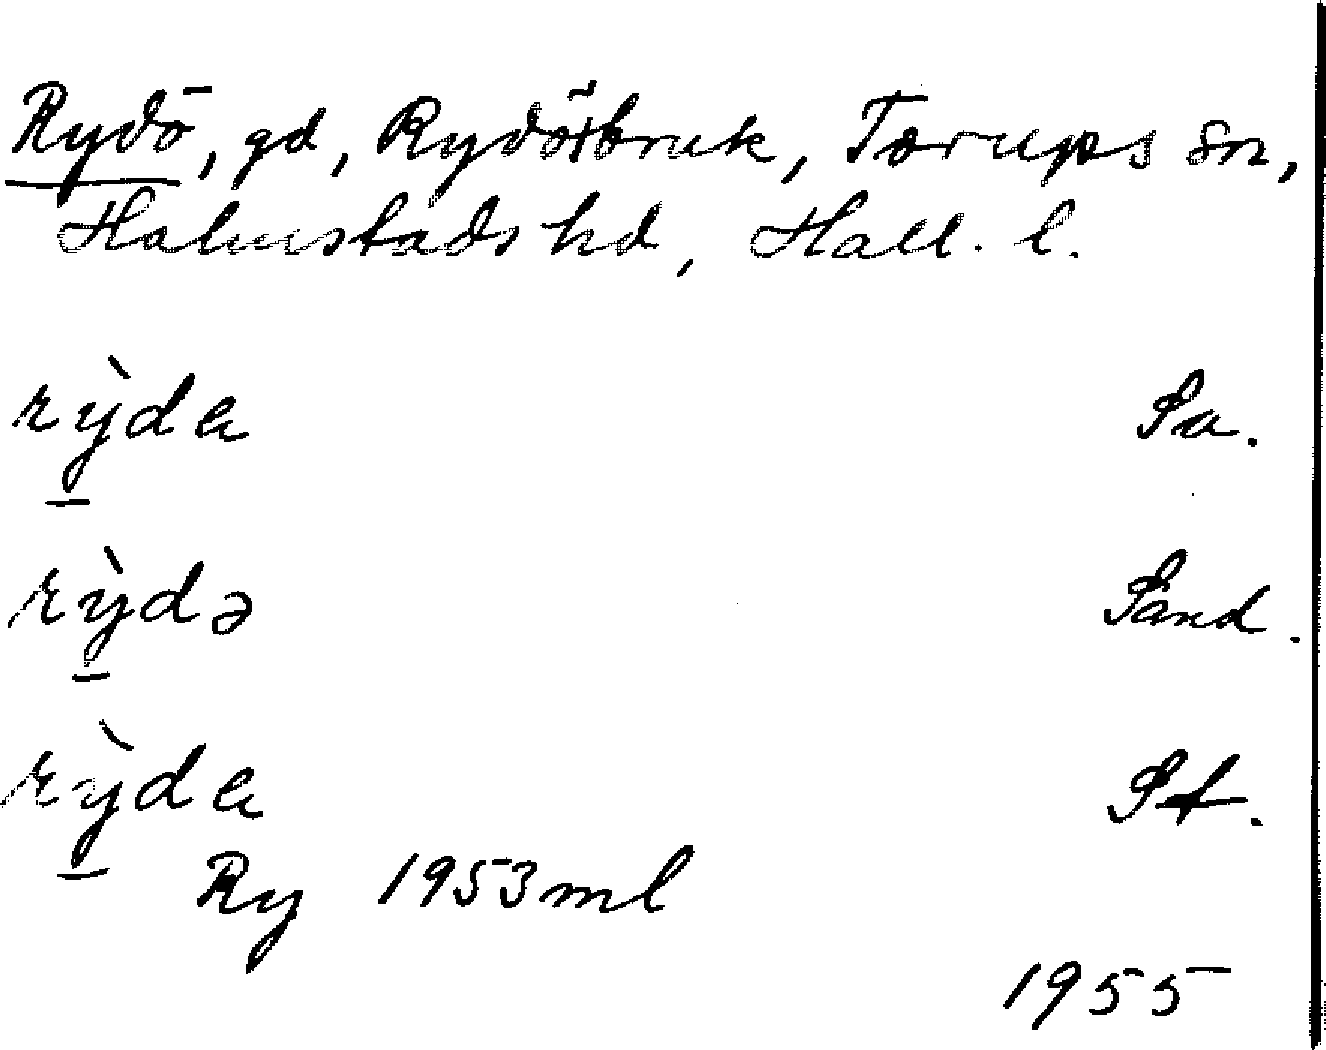 Rydö, gd, Rydöbruk, Torups sn,
Halmstads hd, Hall. l.
rỳda Sa.
rỳdə Sand.
rỳda St.
Ry 1953 ml
1955